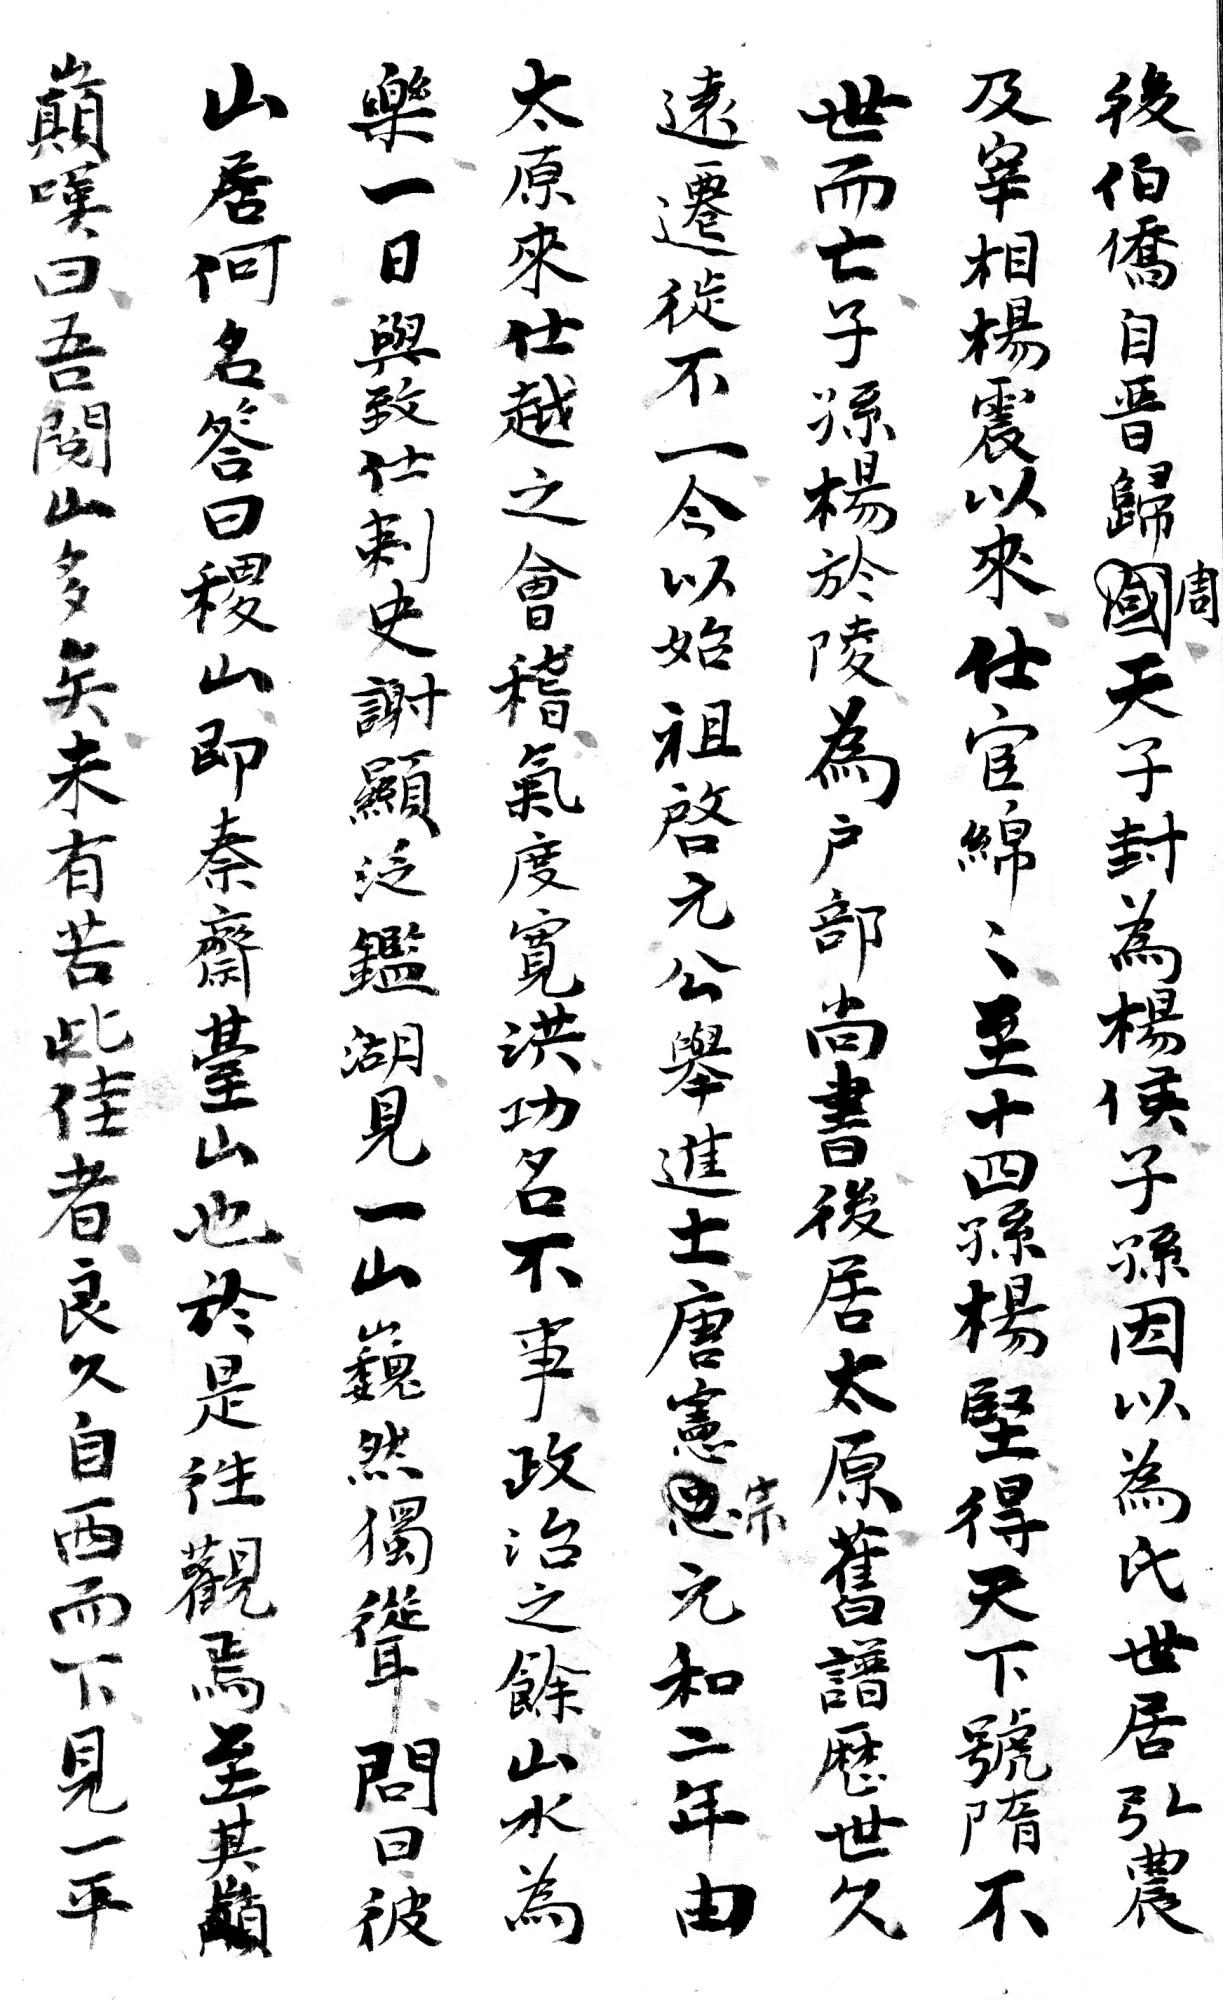 後伯僑自晋歸周天子封為楊侯子孫因以為氏世居弘農
及宰相楊震以來仕宦綿〻至十四孫楊堅得天下號隋不
世而亡子孫楊於陵為户部尚書後居太原舊譜歷世久
遠遷徙不一今以始祖啓元公舉進士唐憲宗元和二年由
太原來仕越之會稽氣度寬洪功名不事政治之餘山水為
樂一日與致仕刺史謝顯泛鑑湖見一山巍然獨聳問曰彼
山居何名答曰稷山即泰齋臺山也於是往觀焉至其巔
巔嘆曰吾閱山多矣未有若此佳者良久自西而下見一平